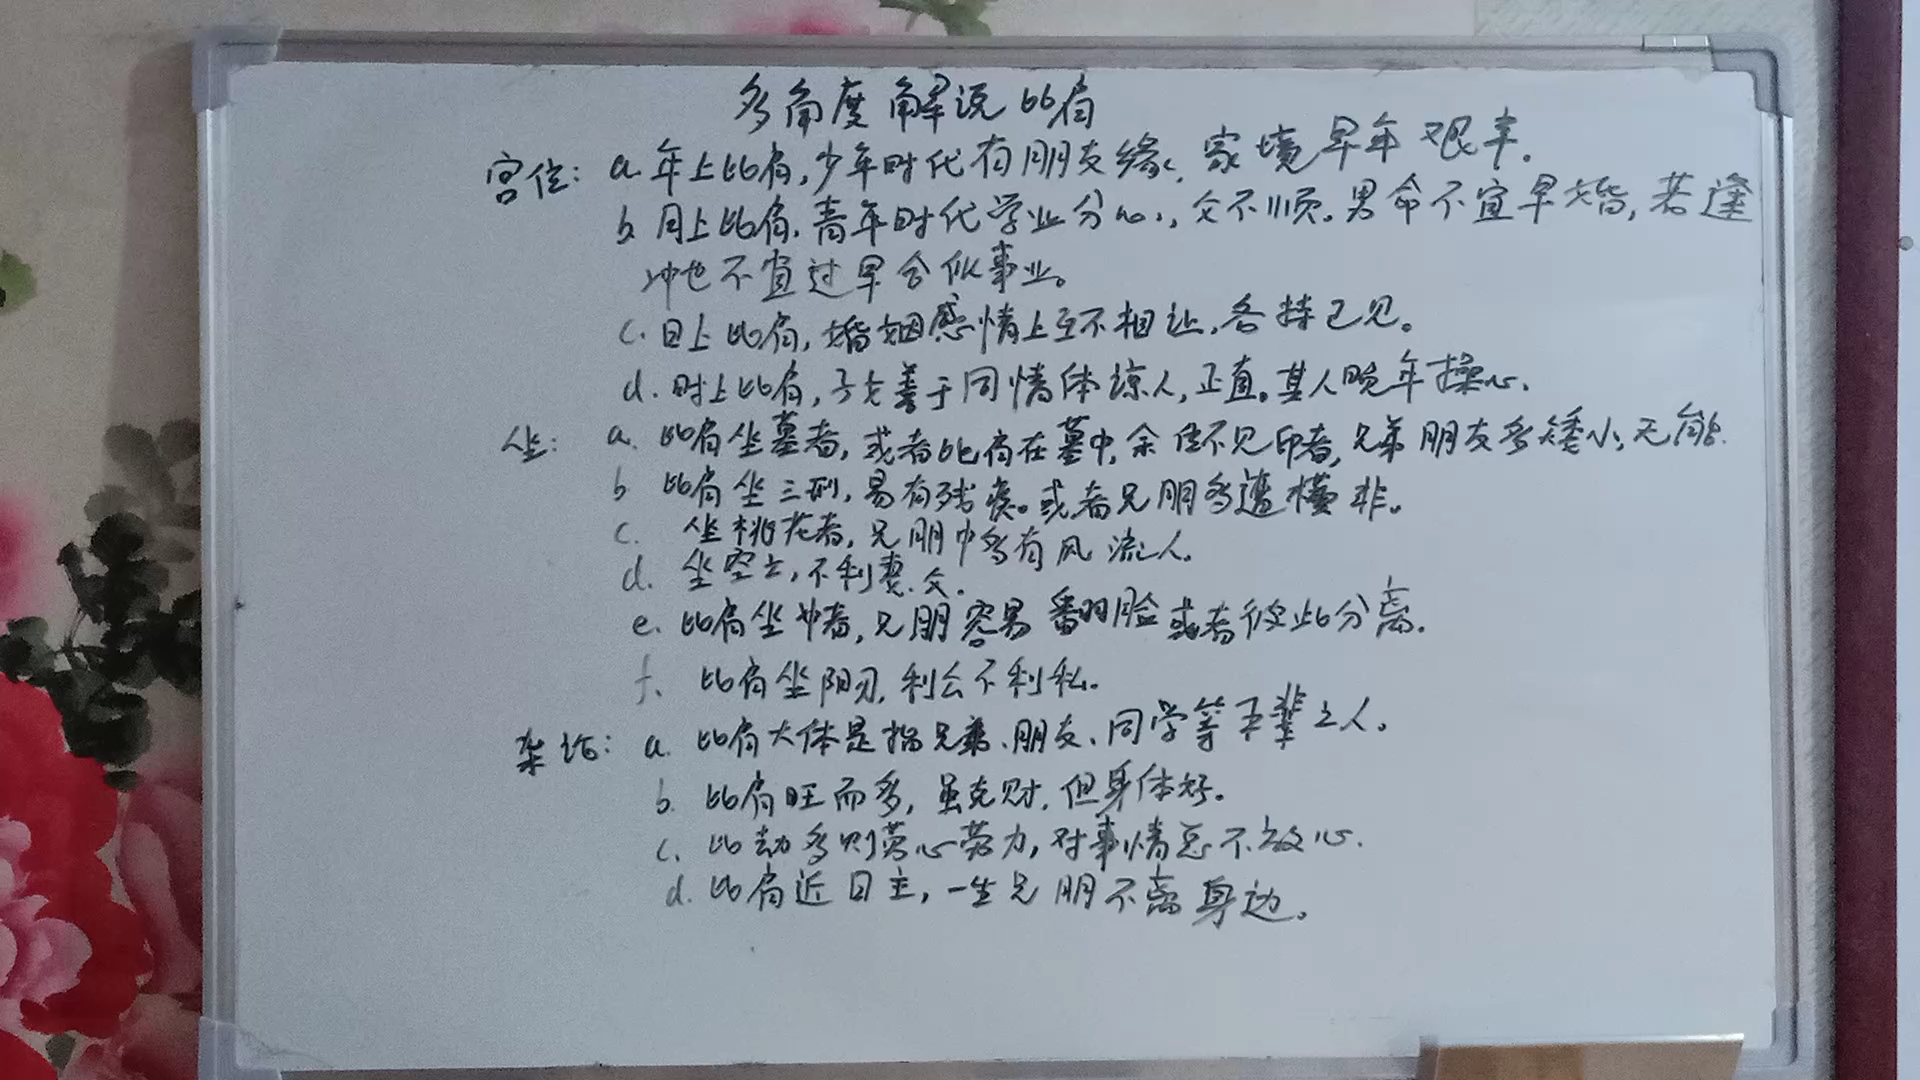 多角度解说比肩
宫位: a. 年上比肩,少年时代有朋友缘、家境早年艰辛.
b 月上比肩.青年时代学业分心,父不顺.男命不宜早婚,若逢
冲也不宜过早合伙事业。
c. 日上比肩,婚姻感情上互不相让,各持己见。
d. 时上比肩,子女善于同情体谅人,正直。其人晚年操心.
坐: a. 比肩坐墓者,或者比肩在墓中,余位不见印者,兄弟朋友多矮小,无能.
b 比肩坐三刑,易有残疾。或者兄朋多遭横非。
c. 坐桃花者,兄朋中多有风流人.
d. 坐空亡,不利妻.父.
e. 比肩坐冲者,兄朋容易翻脸或者彼此分离.
f. 比肩坐阳刃,利公不利私.
杂论: a. 比肩大体是指兄弟、朋友、同学等平辈之人.
b. 比肩旺而多,虽克财.但身体好.
c. 比劫多则劳心劳力,对事情总不放心.
d. 比肩近日主,一生兄朋不离身边。